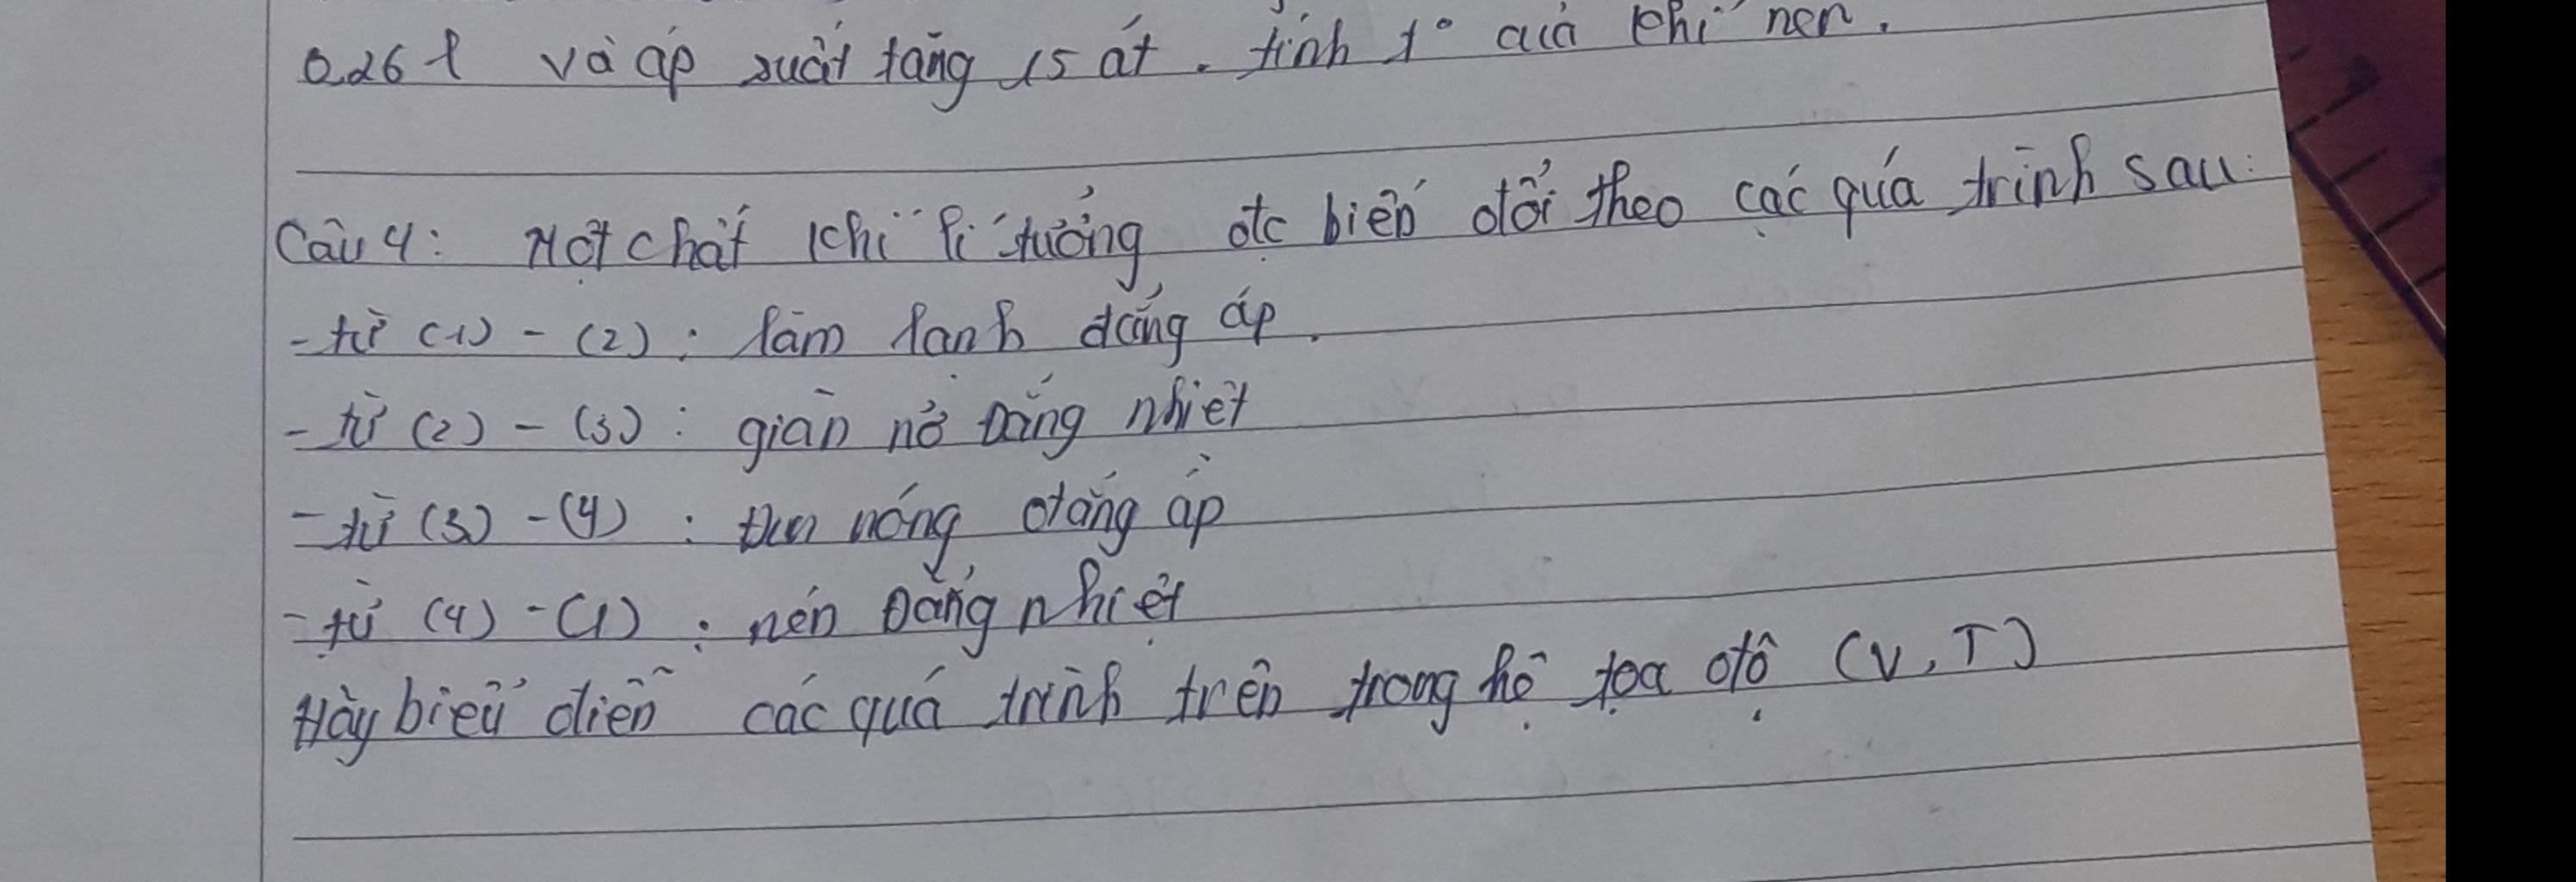 0,26 l và áp suất tăng 15 at. tính t° của khí nén.
Câu 4: Một chất khí lí tưởng đc biến đổi theo các quá trình sau:
- từ (1) - (2) : làm lạnh đẳng áp.
- từ (2) - (3) : giãn nở Đẳng nhiệt
- từ (3) - (4) : Đun nóng đẳng áp
- từ (4) - (1) : nén Đẳng nhiệt
Hãy biểu diễn các quá trình trên trong hệ tọa độ (V, T)